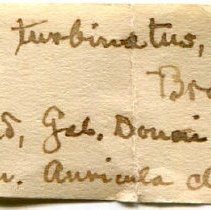 turbinatus,
Bro
d, Geb. Donai
n. Auricula d